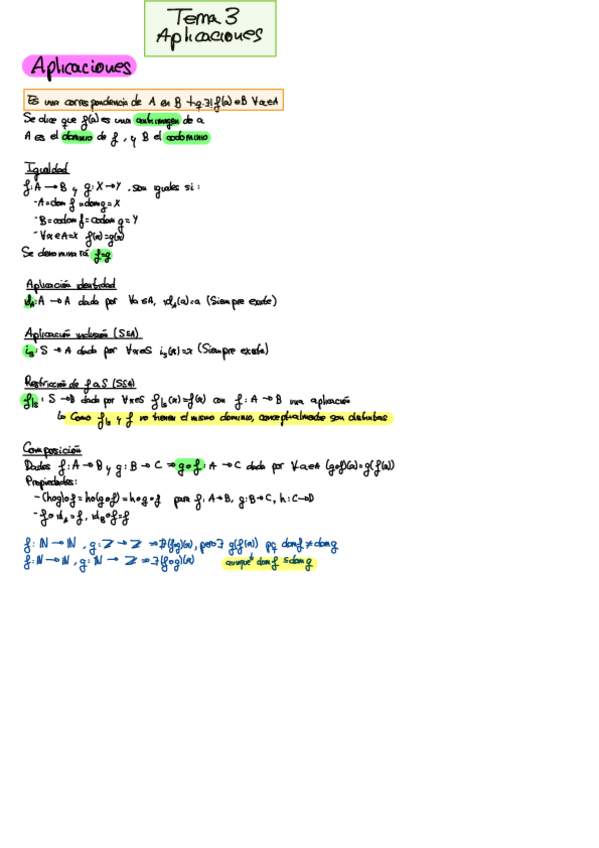 Tema 3
Aplicaciones
Aplicaciones
Es una correspondencia de A en B t.q. ∃! f(a)∈B ∀a∈A
Se dice que f(a) es una antiimagen de a
A es el dominio de f, y B el codominio
Igualdad
f: A → B y g: X → Y, son iguales si:
- A = dom f = dom g = X
- B = codom f = codom g = Y
- ∀x∈A=X f(x)=g(x)
Se denominará f=g
Aplicación identidad
id_A: A → A dada por ∀a∈A, id_A(a)=a (Siempre existe)
Aplicación inclusión (S⊆A)
i_S: S → A dada por ∀x∈S i_S(x)=x (Siempre existe)
Restricción de f a S (S⊆A)
f|_S: S → B dada por ∀x∈S f|_S(x)=f(x) con f: A → B una aplicación
↳ Como f|_S y f no tienen el mismo dominio, conceptualmente son distintas
Composición
Dadas f: A → B y g: B → C ⇒ g∘f: A → C dada por ∀a∈A (g∘f)(a)=g(f(a))
Propiedades:
- (h∘g)∘f = h∘(g∘f) = h∘g∘f para f: A→B, g: B→C, h: C→D
- f∘id_A = f, id_B∘f = f
f: ℕ → ℕ, g: ℤ → ℤ ⇒ ∄(f∘g)(x), pero ∃ g(f(x)) pq dom f ≠ dom g
f: ℕ → ℕ, g: ℕ → ℤ ⇒ ∃(f∘g)(x) aunque dom f ⊆ dom g